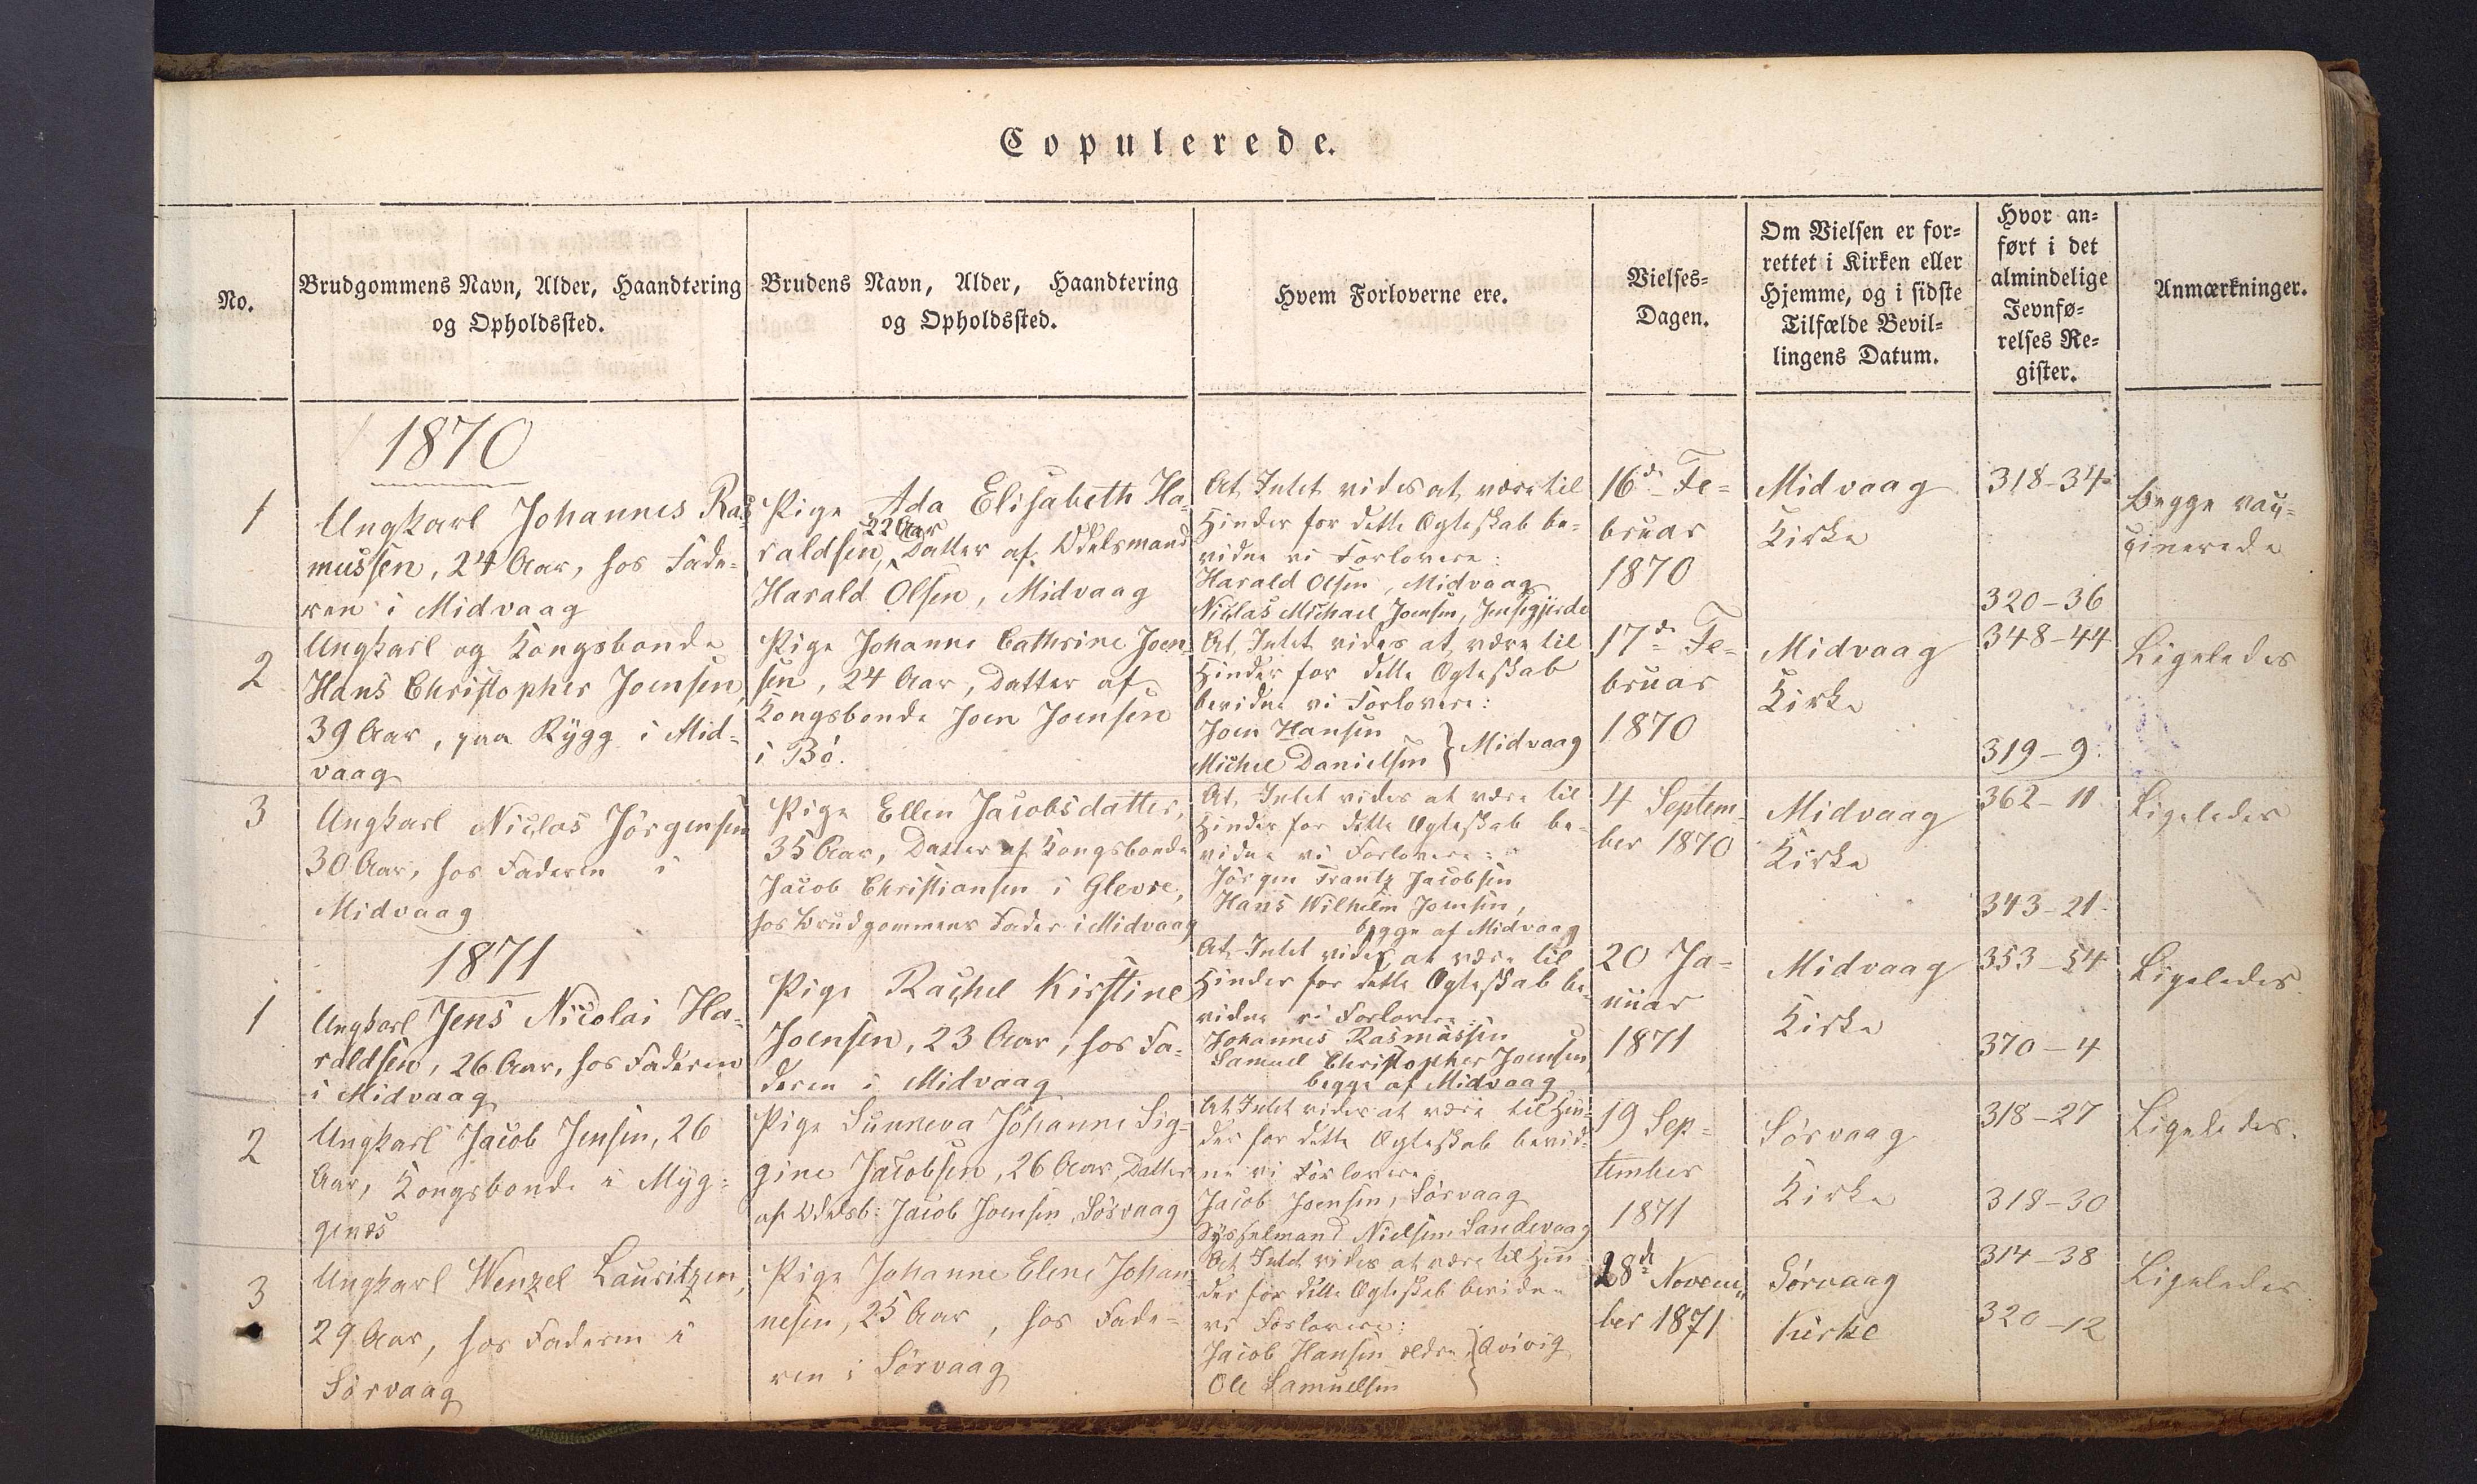 Copulerede.
No.
Brudgommens Navn, Alder, Haandtering
og Opholdssted.
Brudens Navn, Alder, Haandtering
og Opholdssted.
Hvem Forloverne ere.
Vielses-
Dagen.
Om Vielsen er for-
rettet i Kirken eller
Hjemme, og i sidste
Tilfælde Bevil-
lingens Datum.
Hvor an-
ført i det
almindelige
Jevnfø-
relses Re-
gister.
Anmærkninger.
1870
1
Ungkarl Johannes Ras-
mussen, 24 Aar, hos Fade-
ren i Midvaag
Pige Ada Elisabeth Ha-
22 Aar
raldsen, Datter af Odelsmand
Harald Olsen, Midvaag
At Intet vides at være til
Hinder for dette Ægteskab be-
vidne vi Forlovere:
Harald Olsen, Midvaag
Niclas Michael Joensen, Jensegjerde
16de Fe-
bruar
1870
Midvaag
Kirke
318-34
320-36
Begge vac-
cinerede
2
Ungkarl og Kongsbonde
Hans Christopher Joensen,
39 Aar, paa Rygg i Mid-
vaag
Pige Johanne Cathrine Joen-
sen, 24 Aar, Datter af
Kongsbonde Joen Joensen
i Bö.
At Intet vides at være til
Hinder for dette Ægteskab
bevidne vi Forlovere:
Joen Hansen
Michel Danielsen } Midvaag
17de Fe-
bruar
1870
Midvaag
Kirke
348-44
319-9
Ligeledes
3
Ungkarl Niclas Jörgensen
30 Aar, hos Faderen i
Midvaag
Pige Ellen Jacobsdatter,
35 Aar, Datter af Kongsbonde
Jacob Christiansen i Glevre,
hos Brudgommens Fader i Midvaag
At Intet vides at være til
Hinder for dette Ægteskab be-
vidne vi Forlovere:
Jörgen Frantz Jacobsen
Hans Wilhelm Joensen,
begge af Midvaag
4 Septem-
ber 1870
Midvaag
Kirke
362-11
343-21
Ligeledes
1871
1
Ungkarl Jens Nicolai Ha-
raldsen, 26 Aar, hos Faderen
i Midvaag
Pige Rachel Kirstine
Joensen, 23 Aar, hos Fa-
deren i Midvaag
At Intet vides at være til
Hinder for dette Ægteskab be-
vidne vi Forlovere
Johannes Rasmussen
Samuel Christopher Joensen,
begge af Midvaag
20 Ja-
nuar
1871
Midvaag
Kirke
353-54
370-4
Ligeledes
2
Ungkarl Jacob Jensen, 26
Aar, Kongsbonde i Myg-
genæs
Pige Sunneva Johanne Sig-
gine Jacobsen, 26 Aar, Datter
af Odelsb: Jacob Joensen, Sörvaag
At Intet vides at være til Hin-
der for dette Ægteskab bevid-
ne vi Forlovere
Jacob Joensen, Sörvaag
Sysselmand Nielsen, Sandevaag
19 Sep-
tember
1871
Sörvaag
Kirke
318-27
318-30
Ligeledes.
3
Ungkarl Wenzel Lauritzen,
29 Aar, hos Faderen i
Sörvaag
Pige Johanne Elene Johan-
nesen, 25 Aar, hos Fade-
ren i Sörvaag
At Intet vides at være til Hin-
der for dette Ægteskab bevidne
vi Forlovere:
Jacob Hansen ældre } Qvivig
Ole Samuelsen
28de Novem-
ber 1871
Sörvaag
Kirke
314-38
320-12
Ligeledes